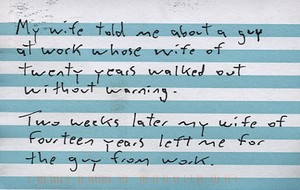 My wife told me about a guy
at work whose wife of
twenty years walked out
without warning.
Two weeks later my wife of
fourteen years left me for
the guy from work.